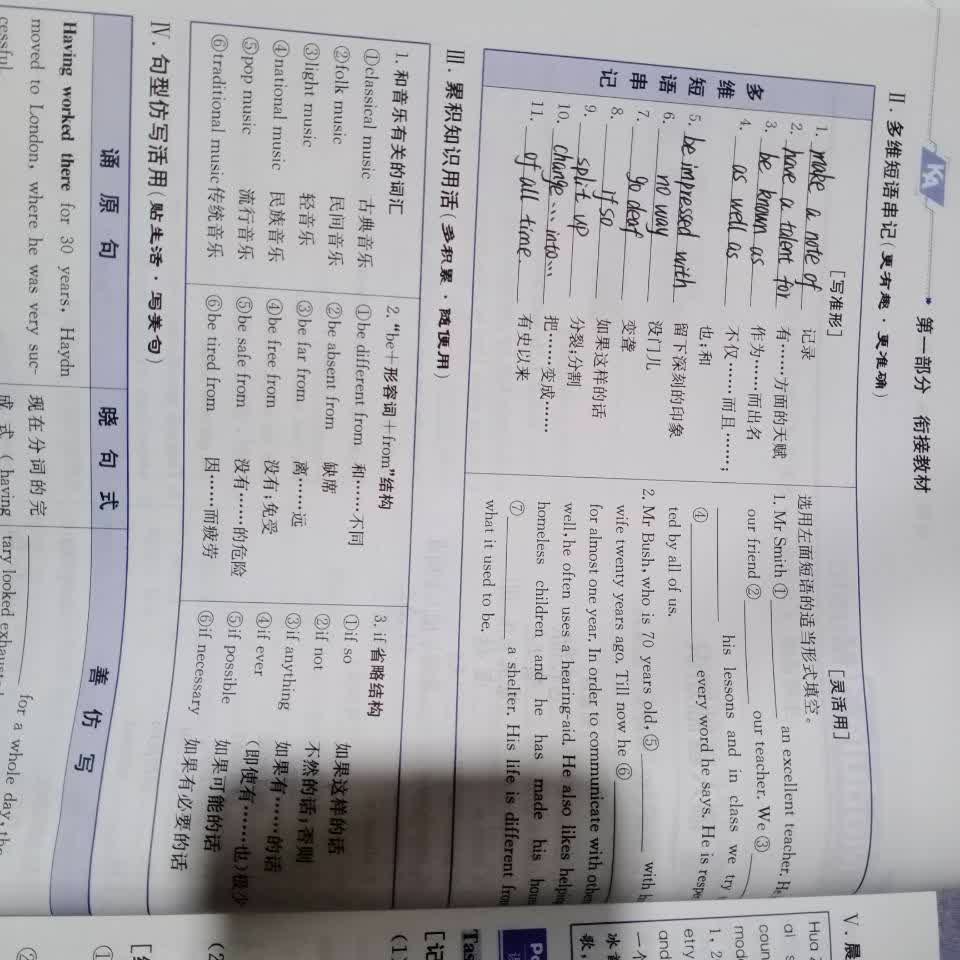 KA
第一部分 衔接教材
Ⅱ.多维短语串记(更有趣·更准确)
多维短语串记
[写准形]
1. make a note of 记录
2. have a talent for 有……方面的天赋
3. be known as 作为……而出名
4. as well as 不仅……而且……;
也;和
5. be impressed with 留下深刻的印象
6. no way 没门儿
7. go deaf 变聋
8. if so 如果这样的话
9. split up 分裂;分割
10. change … into … 把……变成……
11. of all time. 有史以来
[灵活用]
选用左面短语的适当形式填空。
1. Mr Smith ① an excellent teacher. He
our friend ② our teacher. We ③
his lessons and in class we try
④ every word he says. He is respec
ted by all of us.
2. Mr Bush, who is 70 years old, ⑤ with h
wife twenty years ago. Till now he ⑥
for almost one year. In order to communicate with othe
well, he often uses a hearing-aid. He also likes helpin
homeless children and he has made his hous
⑦ a shelter. His life is different from
what it used to be.
Ⅲ.累积知识用活(多积累·随便用)
1. 和音乐有关的词汇
①classical music 古典音乐
②folk music 民间音乐
③light music 轻音乐
④national music 民族音乐
⑤pop music 流行音乐
⑥traditional music传统音乐
2. “be+形容词+from”结构
①be different from 和……不同
②be absent from 缺席
③be far from 离……远
④be free from 没有;免受
⑤be safe from 没有……的危险
⑥be tired from 因……而疲劳
3. if 省略结构
①if so 如果这样的话
②if not 不然的话;否则
③if anything 如果有……的话
④if ever (即使有……也)极少
⑤if possible 如果可能的话
⑥if necessary 如果有必要的话
Ⅳ.句型仿写活用(贴生活·写美句)
诵原句 晓句式 善仿写
Having worked there for 30 years, Haydn
moved to London, where he was very suc-
cessful
现在分词的完
成式(having
for a whole day, the
tary looked
Ⅴ.晨
Hua
al
coun
mod
1, 2
etry
and
一个
冰
歌,
Tas
[记
(1)
(2
①
②